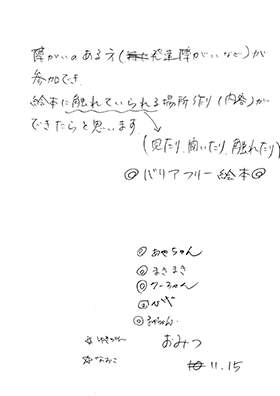 障がいのある方(発達障がいなど)が
参加でき、
絵本に触れていられる場所作り(内容)が
できたらと思います。
(見たり、聞いたり、触れたり)
◎バリアフリー絵本◎
◎あやちゃん
◎まきまき
◎くーちゃん
おみつ
11.15